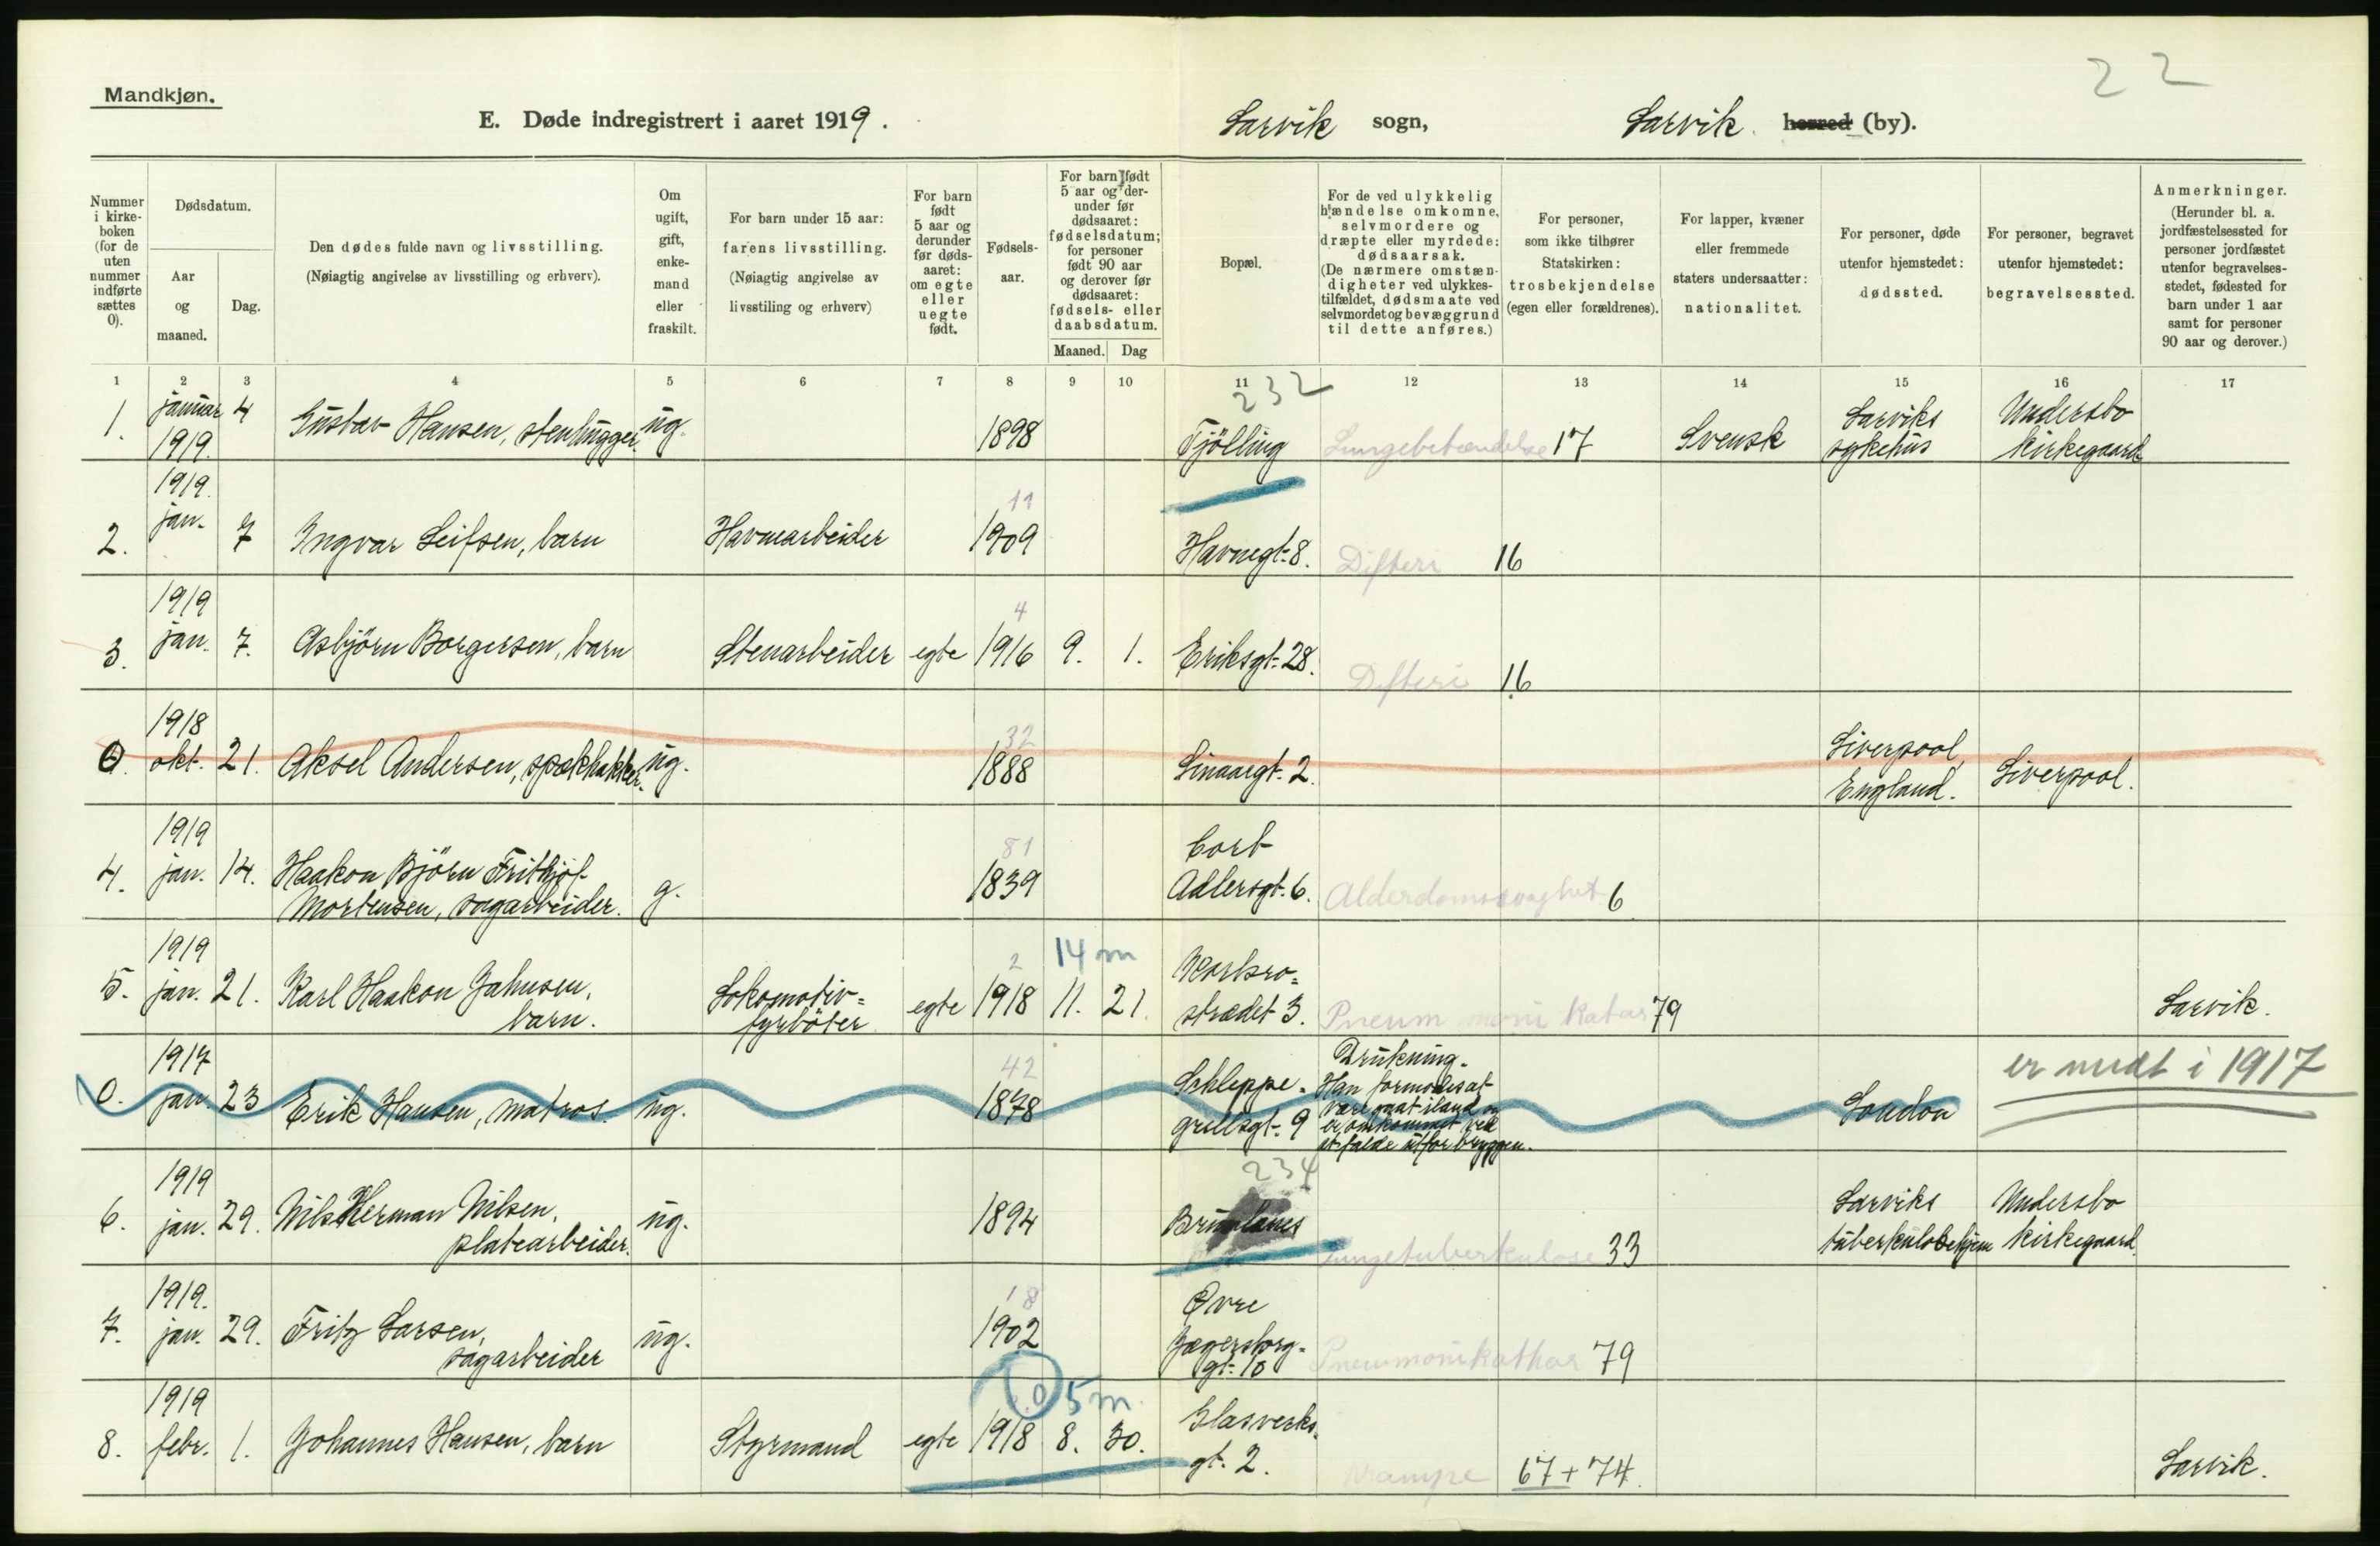 22
Mandkjøn.
E. Døde indregistrert i aaret 1919.
Larvik sogn,
Larvik. herred (by).
Nummer i kirke-boken (for de uten nummer indførte sættes 0).
Dødsdatum.
Aar og maaned.
Dag.
Den dødes fulde navn og livsstilling.
(Nøiagtig angivelse av livsstilling og erhverv).
Om ugift, gift, enke-mand eller fraskilt.
For barn under 15 aar:
farens livsstilling.
(Nøiagtig angivelse av livsstiling og erhverv)
For barn født 5 aar og derunder før døds-aaret: om egte eller uegte født.
Fødsels-aar.
For barn født 5 aar og der-under før dødsaaret: fødselsdatum; for personer født 90 aar og derover før dødsaaret: fødsels- eller daabsdatum.
Maaned. Dag
Bopæl.
For de ved ulykkelig hændelse omkomne, selvmordere og dræpte eller myrdede: dødsaarsak.
(De nærmere omstæn-digheter ved ulykkes-tilfældet, dødsmaate ved selvmordet og bevæggrund til dette anføres.)
For personer, som ikke tilhører Statskirken: trosbekjendelse (egen eller forældrenes).
For lapper, kvæner eller fremmede staters undersaatter: nationalitet.
For personer, døde utenfor hjemstedet: dødssted.
For personer, begravet utenfor hjemstedet: begravelsessted.
Anmerkninger.
(Herunder bl. a. jordfæstelsessted for personer jordfæstet utenfor begravelses-stedet, fødested for barn under 1 aar samt for personer 90 aar og derover.)
1 2 3 4 5 6 7 8 9 10 11 12 13 14 15 16 17
232
1. januar 1919. 4 Gustav Hansen, stenhugger. ug. 1898 Tjölling Lungebetændelse 17 Svensk Larviks sykehus Undersbo kirkegaard
2. 1919. jan. 7 Ingvar Leifsen, barn Havnearbeider 11 1909 Havnegt. 8. Difteri 16
3. 1919 jan. 7. Asbjörn Borgersen, barn Stenarbeider egte 4 1916 9. 1. Eriksgt. 28. Difteri 16
0. 1918 okt. 21. Aksel Andersen, spækhakker. ug. 32 1888 Linaaegt. 2. Liverpool, England. Liverpool.
4. 1919 jan. 14. Haakon Björn Frithjof Mortensen, sagarbeider. g. 81 1839 Cort Adlersgt. 6. Alderdomssvaghet 6
5. 1919 jan. 21. Karl Haakon Jahnsen, barn. Lokomotiv-fyrböter egte 2 1918 14 m 11. 21. strædet 3. Pneum moni katar 79 Larvik.
0. 1917 jan. 23 Erik Hansen, matros. ug. 42 1878 Schleppe-grellsgt. 9 Drukning. Han formodes at være gaat iland og er omkommet ved at falde utfor bryggen. London
er medt i 1917
234
6. 1919 jan. 29. Nils Herman Nilsen, platearbeider. ug. 1894 Brunlanes Lungetuberkulose 33 Larviks tuberkulosehjem Undersbo kirkegaard.
7. 1919. jan. 29. Fritz Larsen, sagarbeider ug. 18 1902 Øvre Jægersborg-gt. 10 Pneumonikathar 79
8. 1919 febr. 1. Johannes Hansen, barn Styrmand egte 0 5 m. 1918 8. 30. Glasverks-gt. 2. Krampe 67 + 74. Larvik.